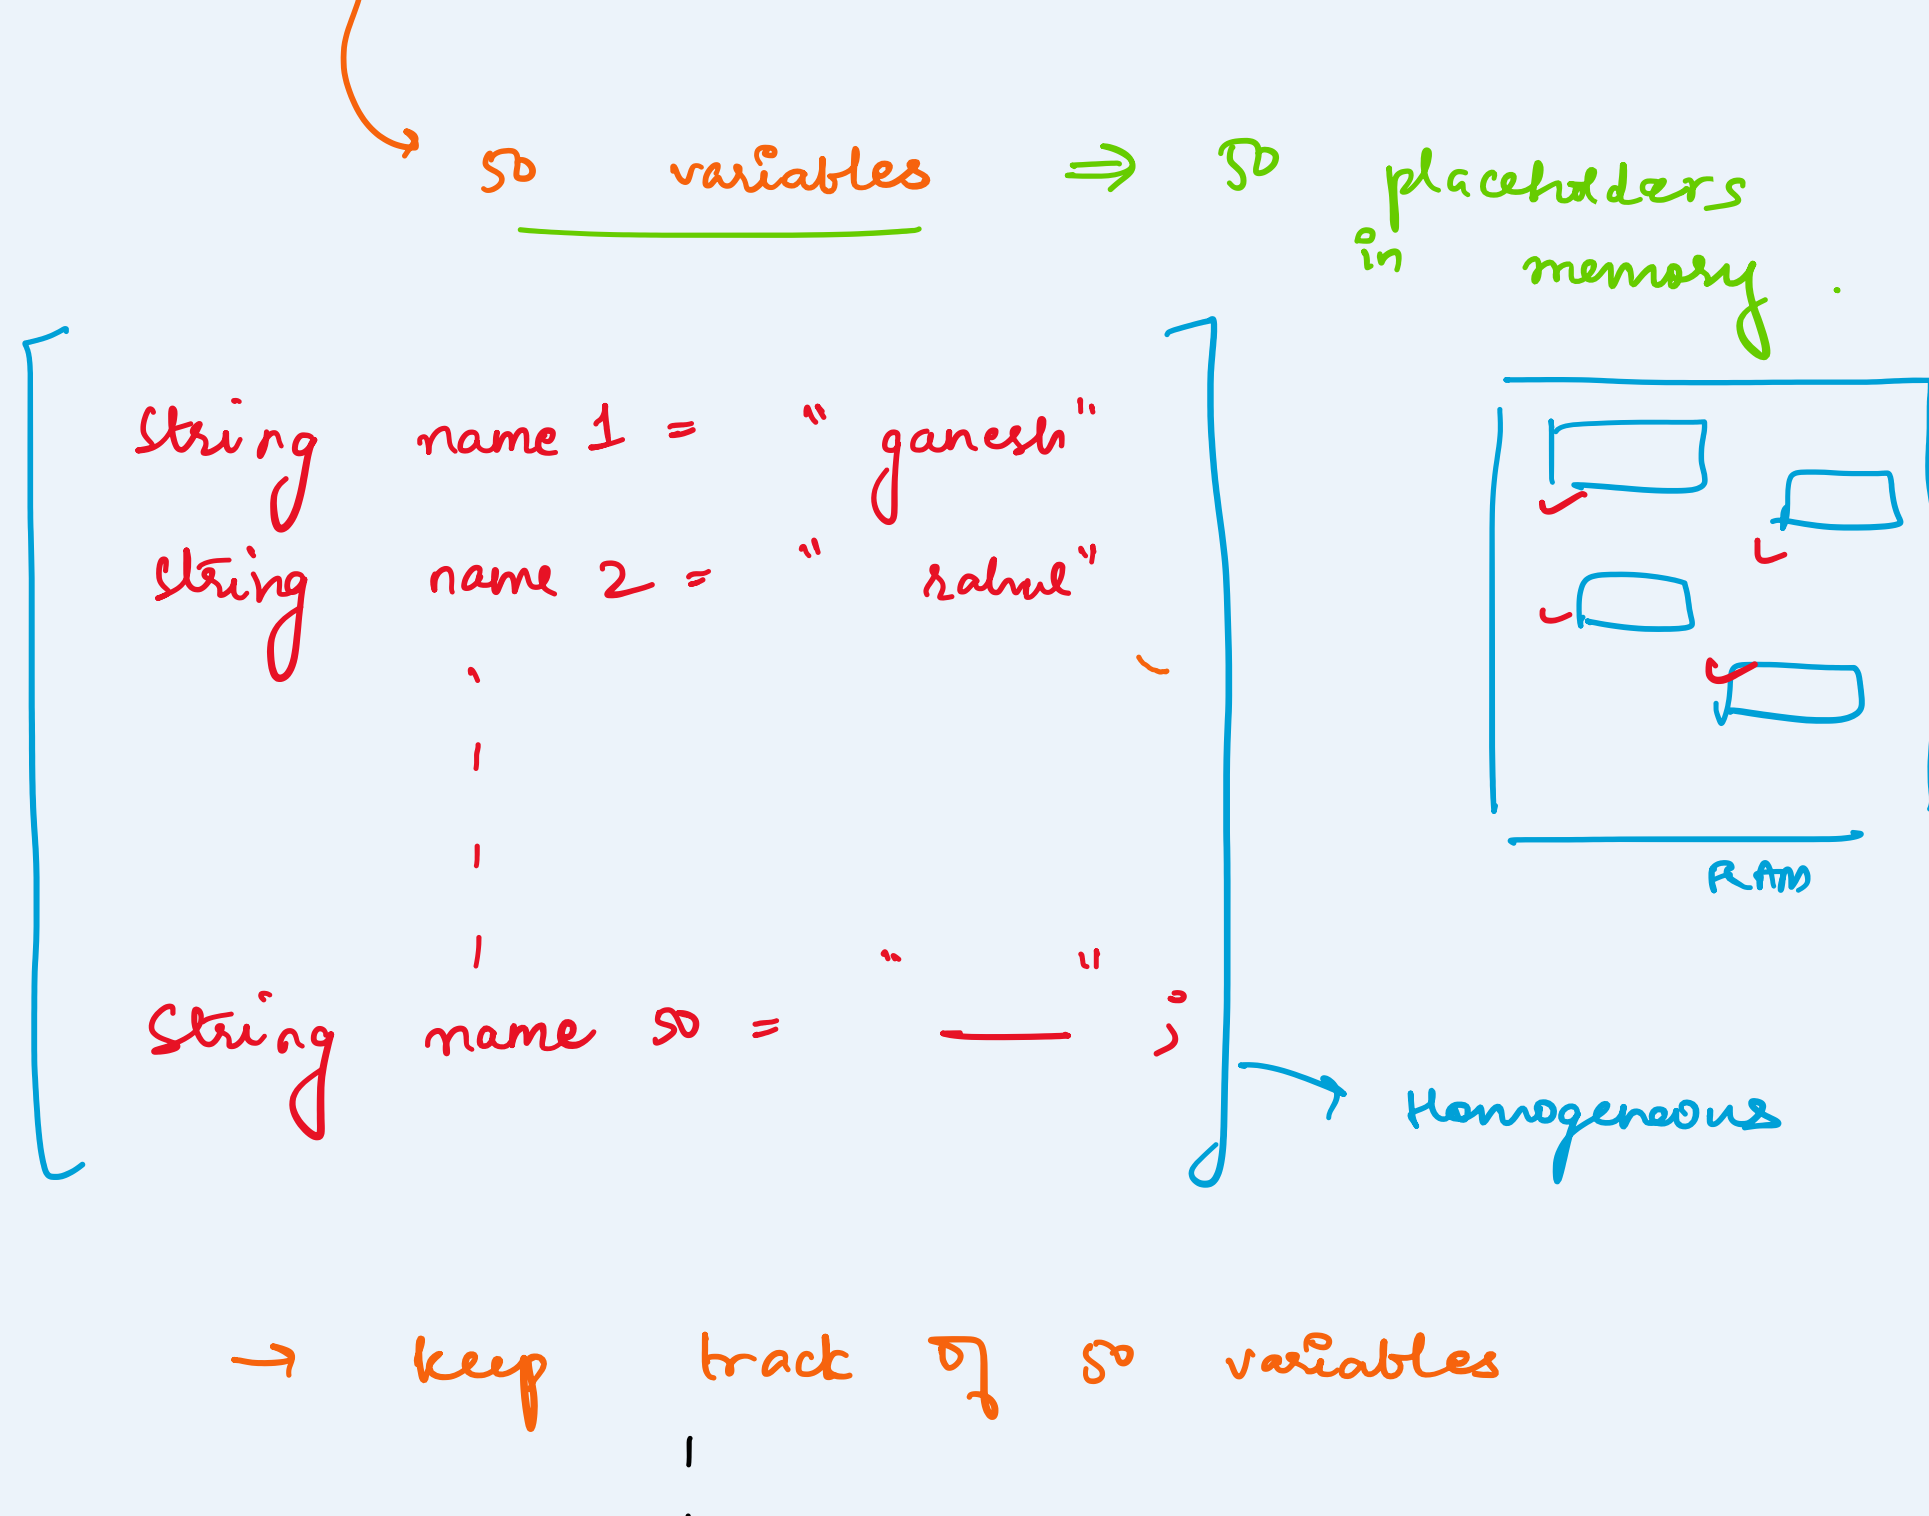 50 variables ⇒ 50 placeholders
in memory .
String name 1 = "ganesh"
String name 2 = "rahul"
String name 50 = "____" ;
RAM
→ Homogeneous
→ keep track of 50 variables